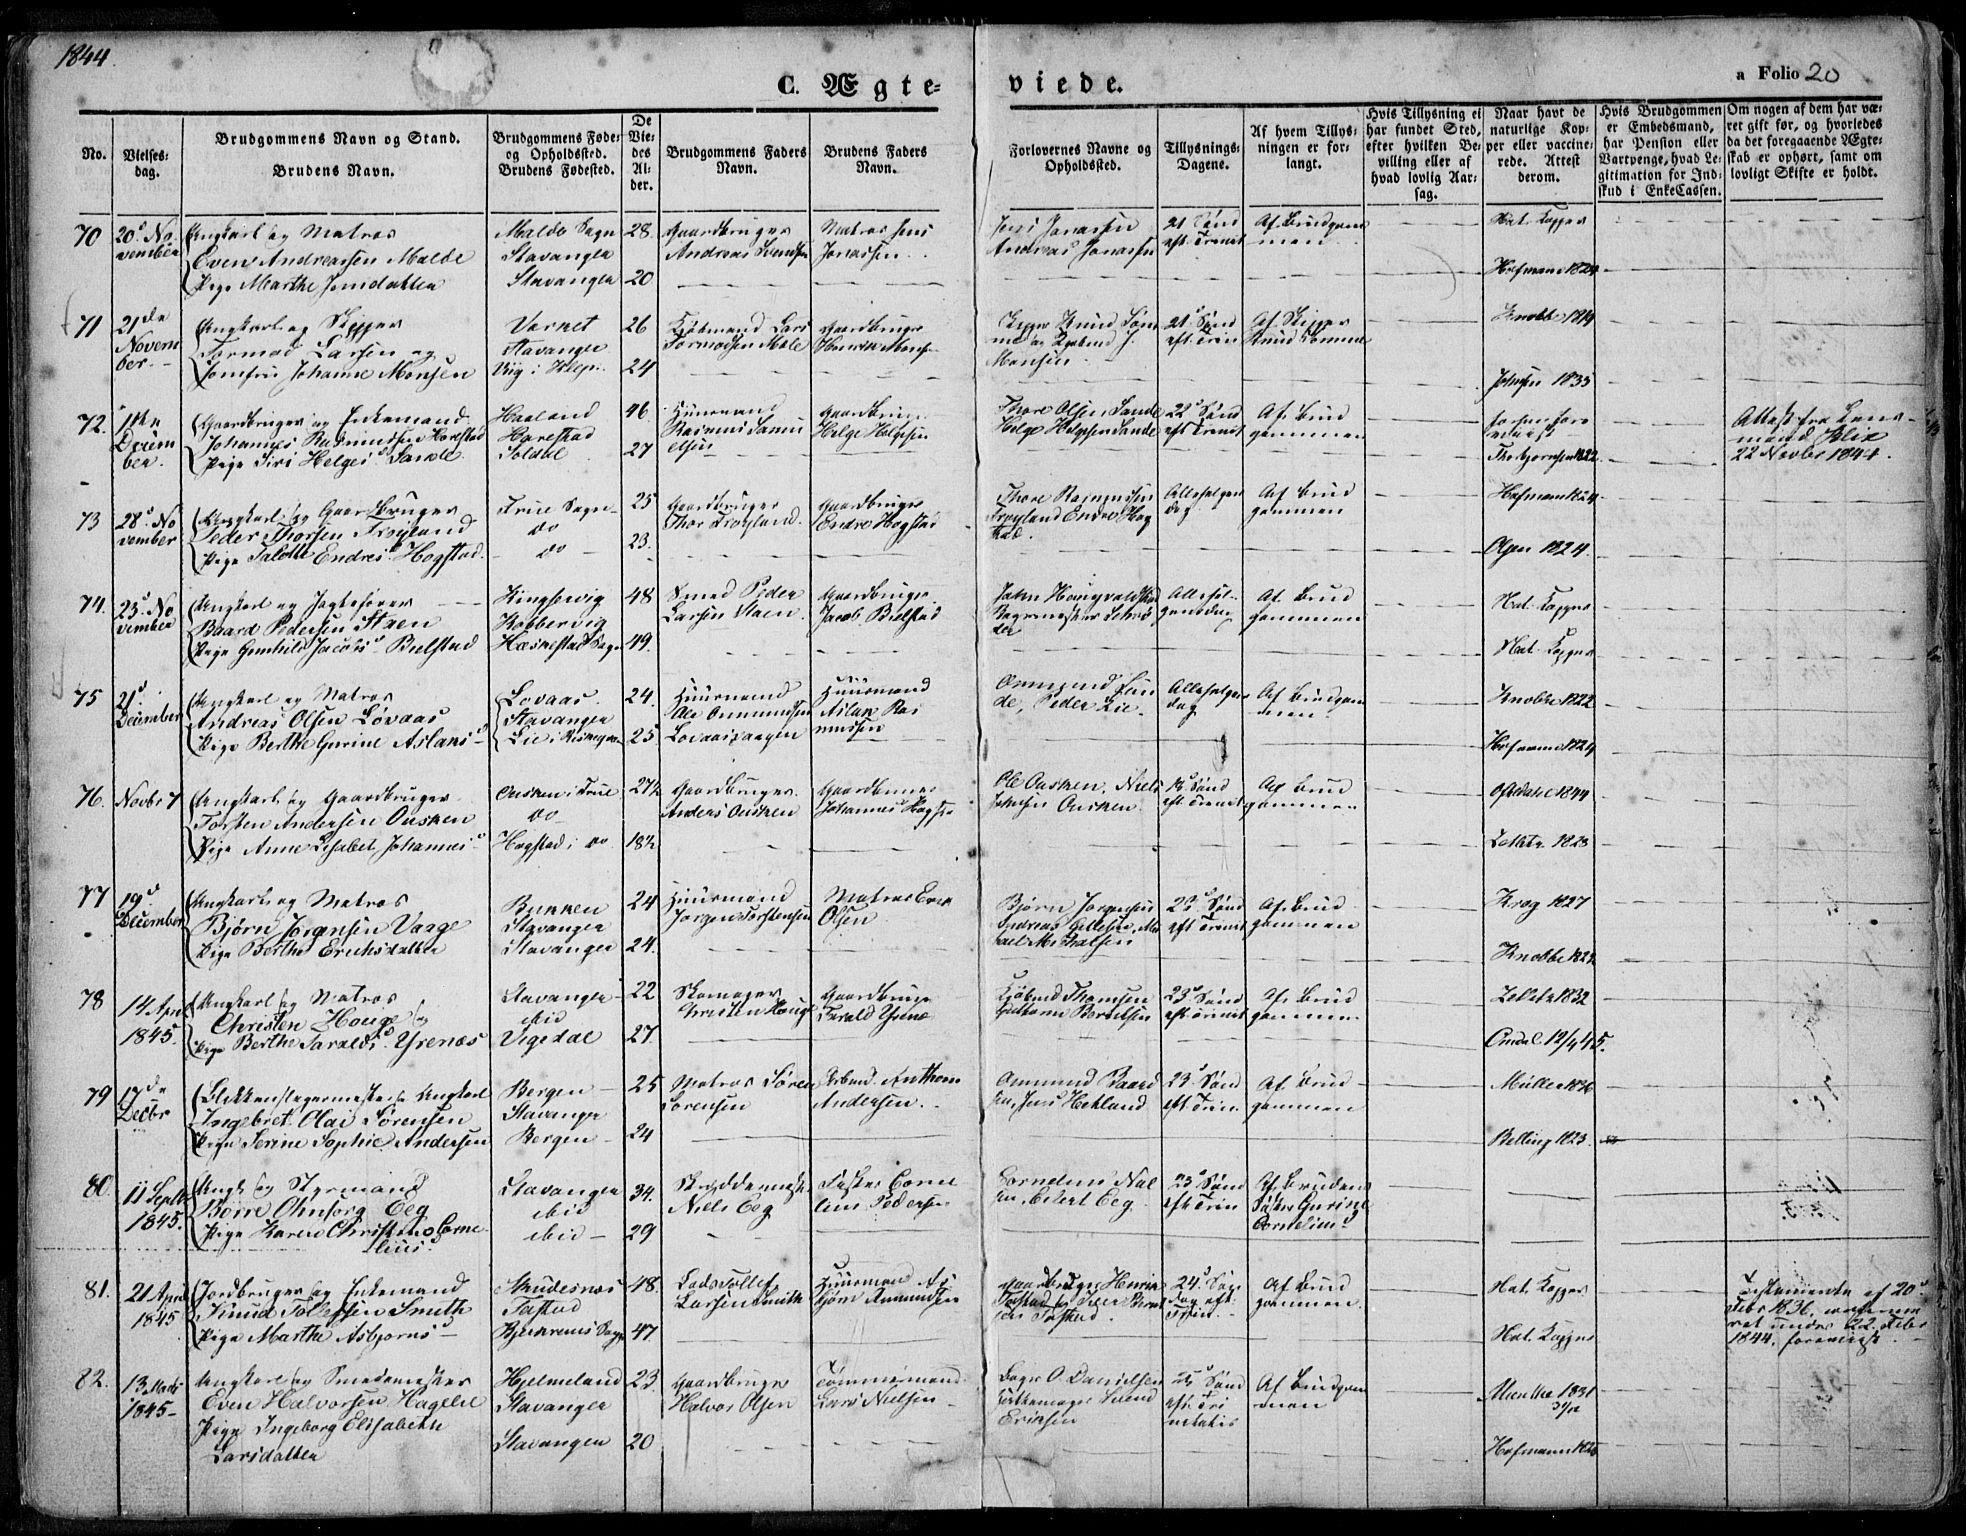 1844.
C. Ægte-
viede.
a Folio 20
No.
Vielses-
dag.
Brudgommens Navn og Stand.
Brudens Navn.
Brudgommens Føde-
og Opholdssted.
Brudens Fødested.
De
Vie-
des
Al-
der.
Brudgommens Faders
Navn.
Brudens Faders
Navn.
Forlovernes Navne og
Opholdssted.
Tillysnings-
Dagene.
Af hvem Tillys-
ningen er for-
langt.
Hvis Tillysning ei
har fundet Sted,
efter hvilken Be-
villing eller af
hvad lovlig Aar-
sag.
Naar havt de
naturlige Kop-
per eller vaccine-
rede. Attest
derom.
Hvis Brudgommen
er Embedsmand,
har Pension eller
Vartpenge, hvad Le-
gitimation for Ind-
skud i EnkeCassen.
Om nogen af dem har væ-
ret gift før, og hvorledes
da det foregaaende Ægte-
skab er ophørt, samt om
lovligt Skifte er holdt.
70 20d No
vember
Ungkarl og Matros
Even Andreassen Malde
Pige Marthe Jensdatter
Malde Sogn
Stavanger
Stavanger
28.
20
Gaardbruger
Andreas Svendsen
Matros Jens
Jonassen
Jens Jonassen
Andreas Jonassen
21 Sønd
eft. Trinit
Af Brudgom
men
Nat. Kopper
Hofmann 1824
71 21de
Novem
ber.
Ungkarl og Skipper
Tormod Larsen og
Jomfru Johanne Monsen
Varnet
Stavanger
Viig i Klep.
26
24
Kjøbmand Lars
Tormodsen Male
Gaardbruger
Henrik Mons
Skipper Knud Søm
me og Kjøbmd J.
Monsen
21d Sønd
eft Trin
Af Skipper
Knud Sømme
Knobbe 1819
Johnsen 1835
72. 11te
Decem
ber.
Gaardbruger og Enkemand
Johannes Rasmussen Harestad
Pige Siri Helges D. Sande
Haaland
Harestad
Soldal
46
27
Huusmand
Rasmus Samu
elsen
Gaardbruger
Helge Helgesen
Thore Olsen Sande
Helge Helgesen Sande
22d Sønd
eft Trinit
Af Brud
gommen
Thorbjørnsen 1822.
Attest fra Lens
mand Blix
22 Novbr 1844.
73 28d No
vember
Ungkarl og Gaardbruger
Peder Thorsen Frøyland
Pige Talette Endres D. Hogstad.
Time Sogn
do
do
25
23.
Gaardbruger
Thor Frøyland.
Gaardbruger
Endre Hogstad
Thore Rasmussen
Frøyland Endre Hog
stad.
Allehelgen
dag
Af Brud
gommen
Hofmann 1824.
Olsen 1824.
74. 23d No
vember
Ungkarl og Jagtefører
Baard Pedersen Staen
Pige Gunhild Jacobs D. Bielstad
Kingservig
Kobbervig
Hæskestad Sogn
48
49.
Smed Peder
Larsen Staen.
Gaardbruger
Jacob Bielstad
Allehel-
gensdag
Af Brud
gommen
Nat. Kopper
Nat. Kopper
75 21d
December
Ungkarl og Matros
Andreas Olsen Løvaas
Pige Berthe Gurine Aslaks D
Lovaas.
Stavanger
24.
25
Huusmand
Ole Ommundsen
Huusmand
Aslak Ras
mussen
Ommund Lun
de, Peder Lie.
Allehelgen
dag
Af Brudgom
men
Knobbe 1822
Hofmann 1824
76. Novbr 7
Ungkarl og Gaardbruger
Torsten Andersen Ousken
Pige Anne Lisabet Johannes D
Ousken i Time
do
Hogstad i do
27½
18½
Gaardbruger
Anders Ousken
Gaardbruger
Johannes Hogst
Ole Ousken, Niels
Johnsen Ousken.
Sønd
eft Trinit
Af Brud
gommen
Oftedal 1844
1823
77 19d
December
Ungkarl og Matros
Bjørn Jørgensen Vaage
Pige Berthe Eriksdatter
Bukken
Stavanger
Stavanger
24
24.
Huusmand
Jørgen Torstensen
Matros Erik
Olsen
Bjørn Jørgensen
Andreas Gillesen, Mi
kael Mikalsen
23d Sønd
eft Trinit
Af Brud
gommen
Krog 1827
Knobbe 1824
78 14 April
1845.
Ungkarl og Matros
Christen Houge og
Pige Berthe Taralds D. Yrenæs
Stavanger
ibid
Vigedal
22
27.
Skomager
Christen Houge
Gaardbruger
Tarald Yrenæ
Kjøbmd Thomsen
Berentsen
23d Sønd
eft Trinit
Af Brud
gommen
1832
Omdal 12/4 45.
79 17de
Decbr
Blikkenslagermester og Ungkarl
Ingebret Olai Sørensen
Pige Serine Sophie Andersen
Bergen
Stavanger
Bergen
25
24
Matros Søren
Sørensen
Arbmd. Anthon
Andersen.
Ommund Baard
sen, Jens Hetland
23d Sønd
eft. Trin.
Af Brud
gommen
Müller 1836
Belling 1823.
80. 11 Septbr
1845.
Ungk. og Styrmand
Børre Ohnsorg Eeg
Pige Karen Christine Corne
lius D.
Stavanger
ibid
ibid
34.
29
Skræddermester
Niels Eeg
Fisker Corne
lius Pedersen
Cornelius Niel
sen, Eilert Eeg
23d Sønd
eft Trin
Af Brudens
Søster Gurine
Cornelius D
81. 21 April
1845
Jordbruger og Enkemand
Knud Tollefsen Smith
Pige Marthe Asbjørns D
Skudesnæs
Tastad
Bjerkreims Sogn
48.
47
Lods Tollef
Larsen Smith
Huusmand As
bjørn Amundsen
Gaardbruger Henrik
Tastad
24d Søn
dag eft.
Trin.
Af Brud
gommen.
Nat. Kopper
Nat. Kopper
Testamente af 20d
Febr 1836,
ret under 22 Febr
1844. foreviist.
82. 13 Marts
1845
Ungkarl og Smedemester
Even Halvorsen Hagelie
Pige Ingeborg Elisabeth
Larsdatter
Hjelmeland
Stavanger
Stavanger
23
20
Gaardbruger
Halvor Olsen
Tømmermand
Lars Nielsen
Bager O. Danielsen
Svend
Eriksen
25d Sønd
eft. Tri
nitatis
Af Brudgom
men
Muncke 1831
31/12
Hofmann 1826